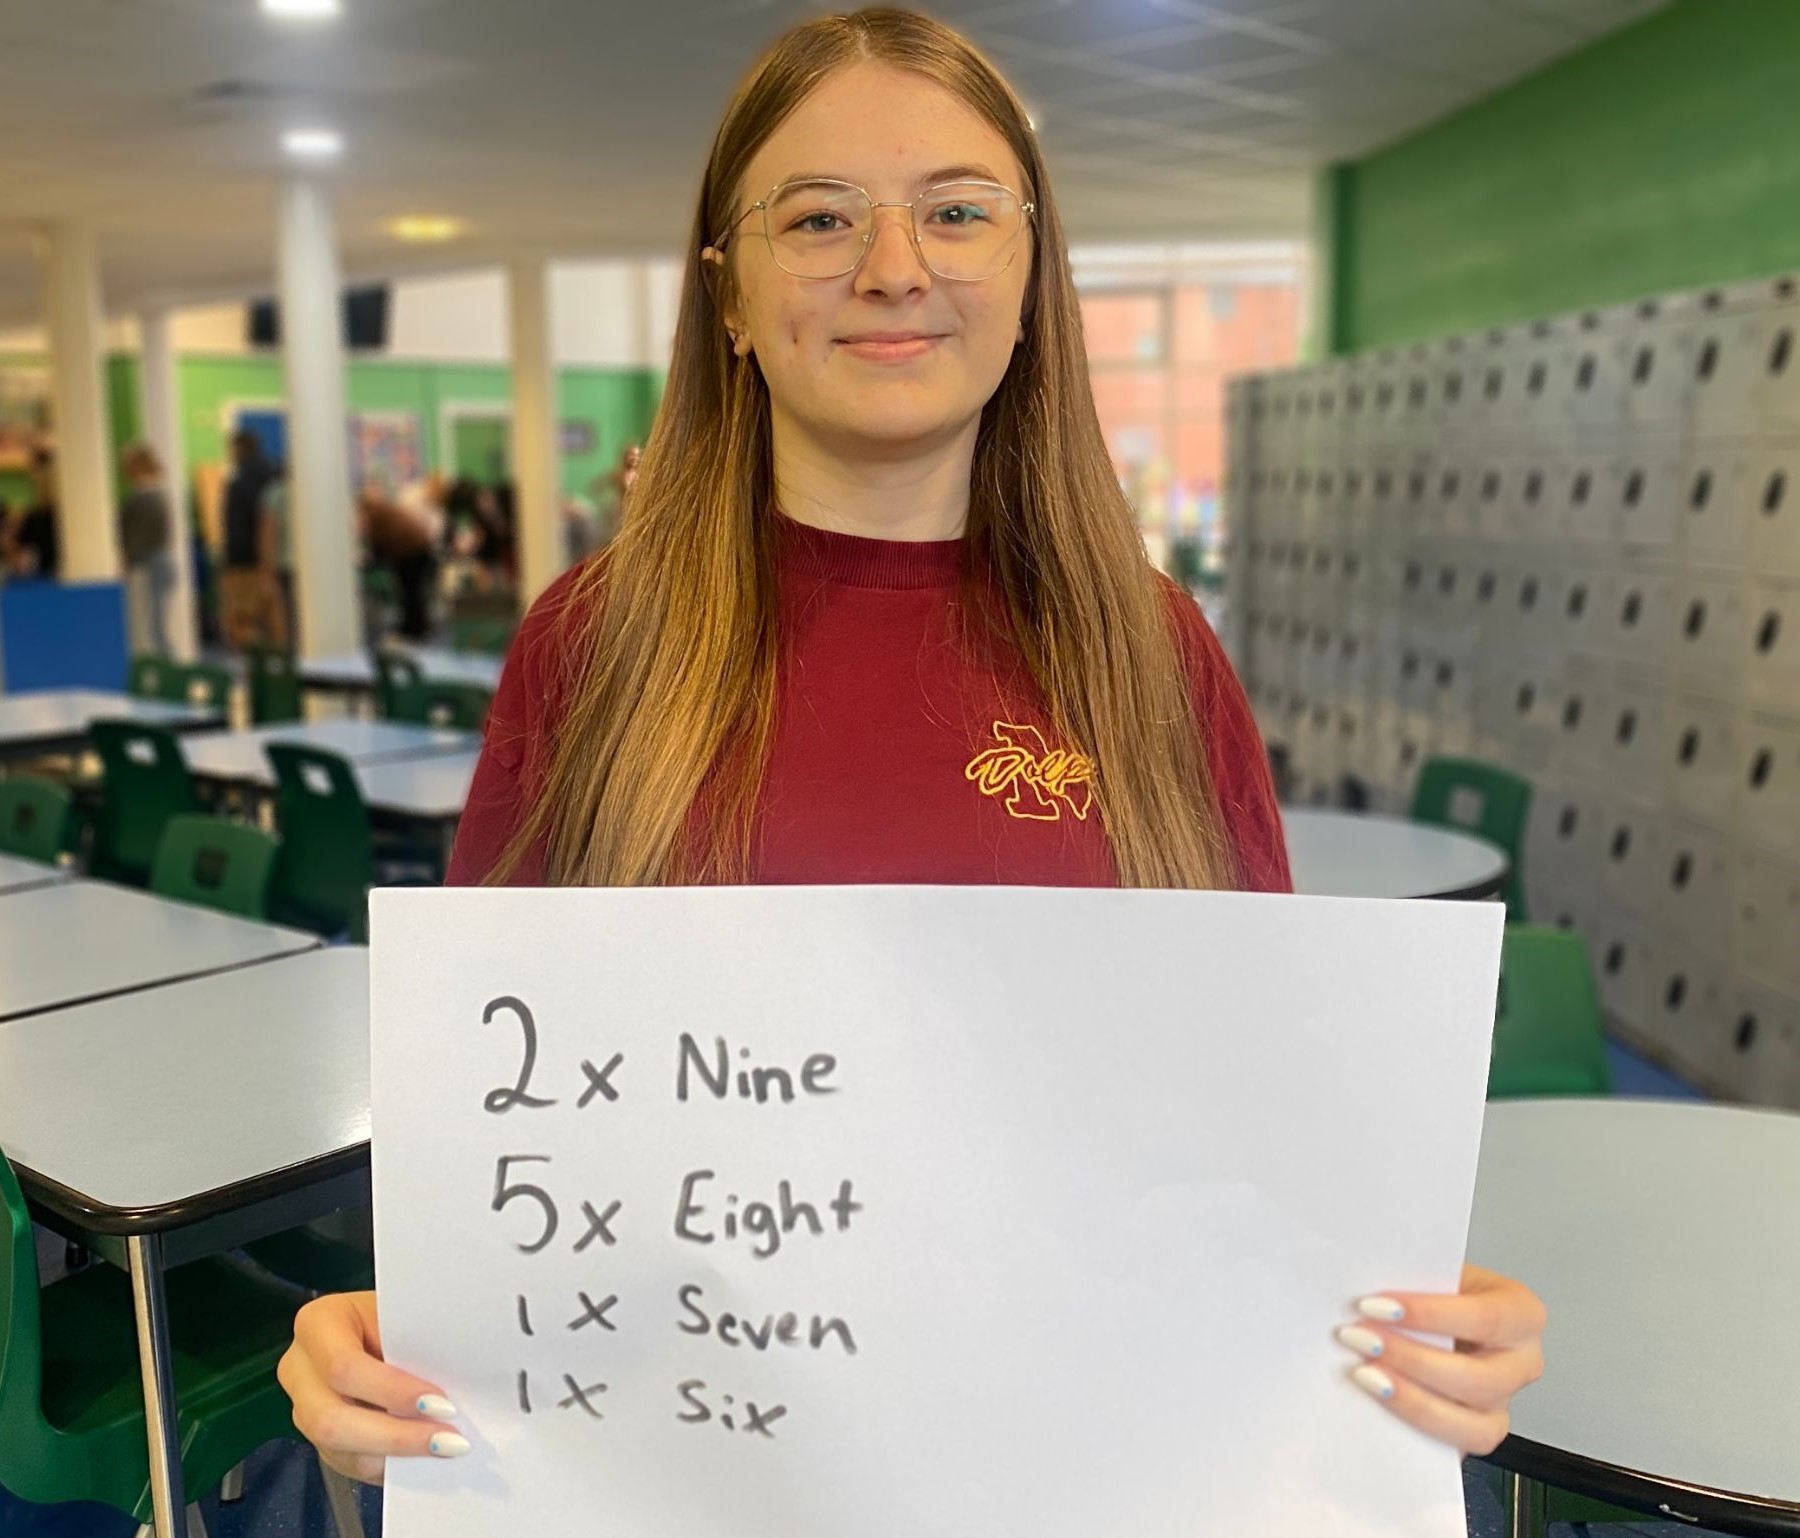 2 x Nine
5 x Eight
1 x Seven
1 x Six